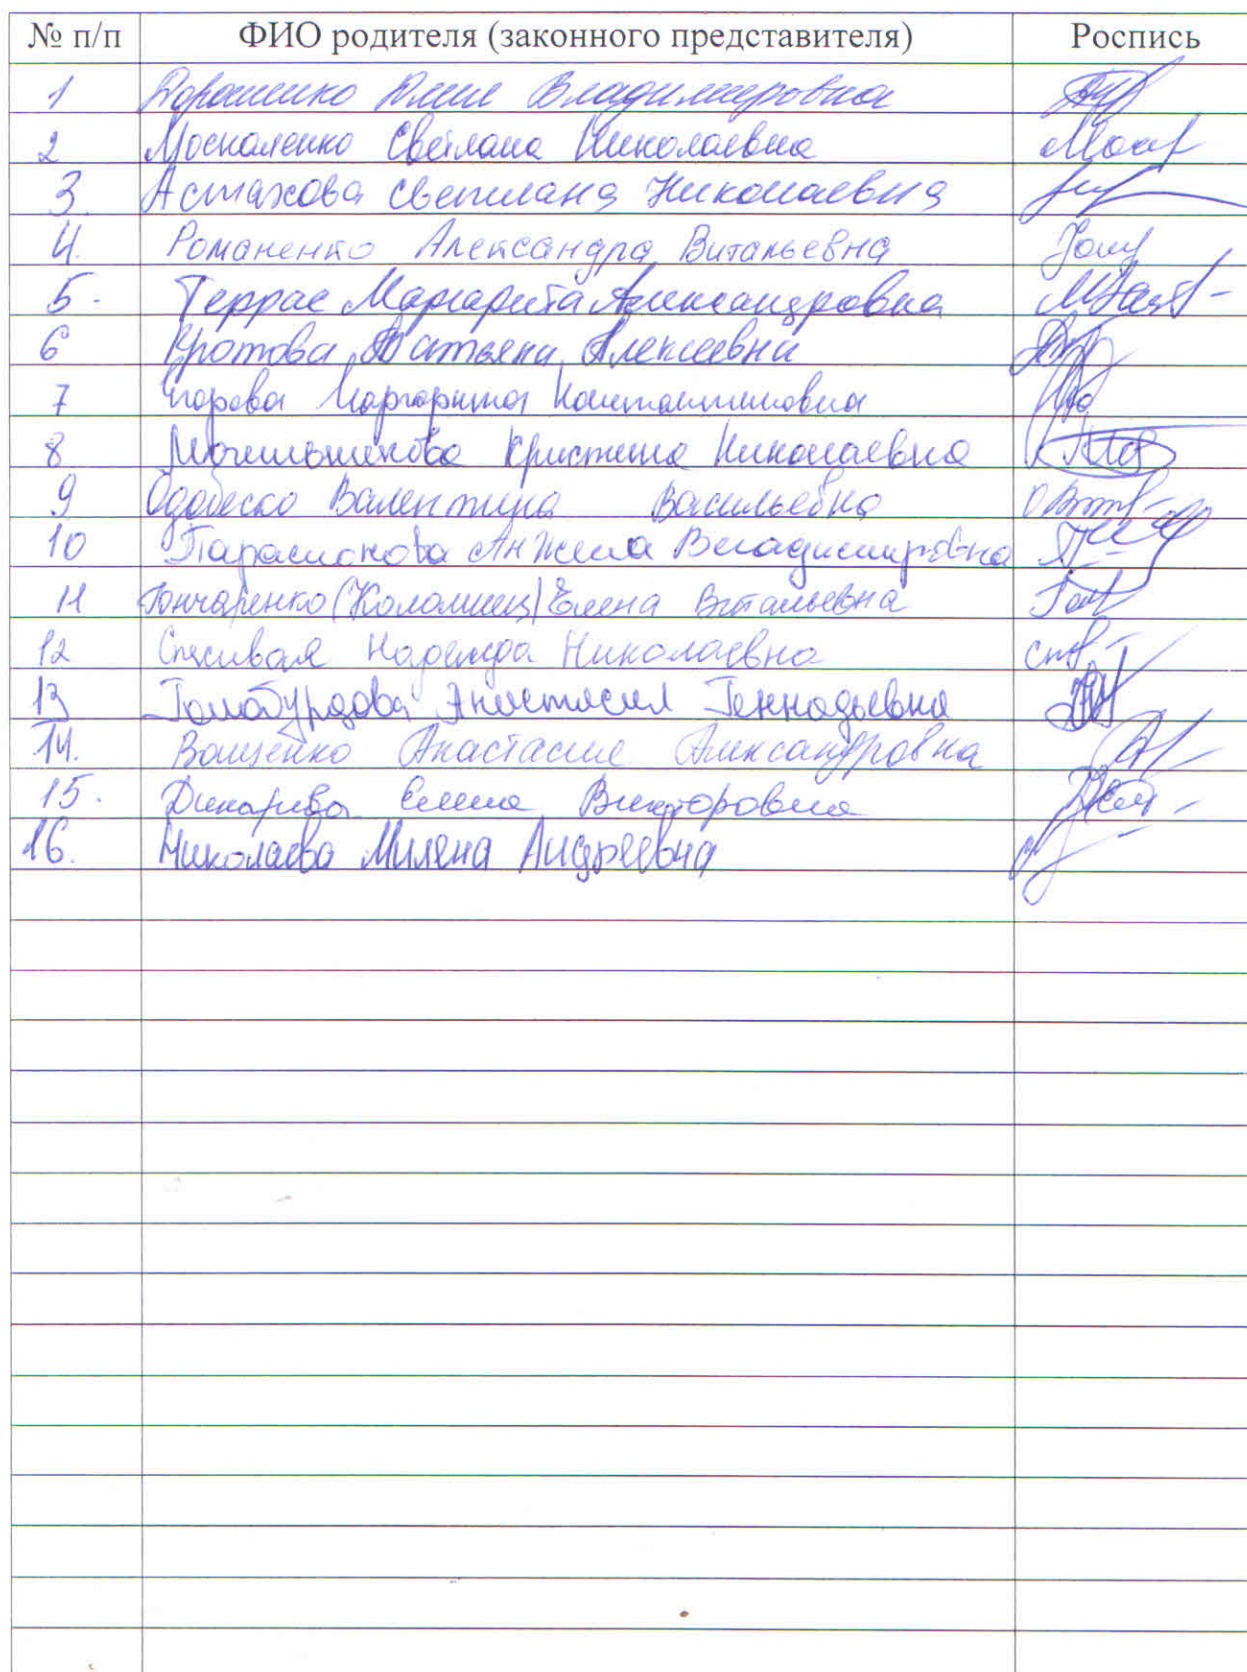 № п/п ФИО родителя (законного представителя) Роспись
1 Дорошенко Юлия Владимировна
2 Москаленко Светлана Николаевна
3. Астахова Светлана Николаевна
4. Романенко Александра Витальевна
5. Террас Маргарита Александровна
6 Кротова Татьяна Алексеевна
7 Маргарита Константиновна
8 Кристина Николаевна
9 Одобеско Валентина Васильевна
10 Парамонова Анжела Владимировна
11 Гончаренко (Коломиец) Елена Витальевна
12 Спесивая Надежда Николаевна
13 Анастасия Геннадьевна
14. Ващенко Анастасия Александровна
15. Елена Викторовна
16. Николаева Милена Андреевна